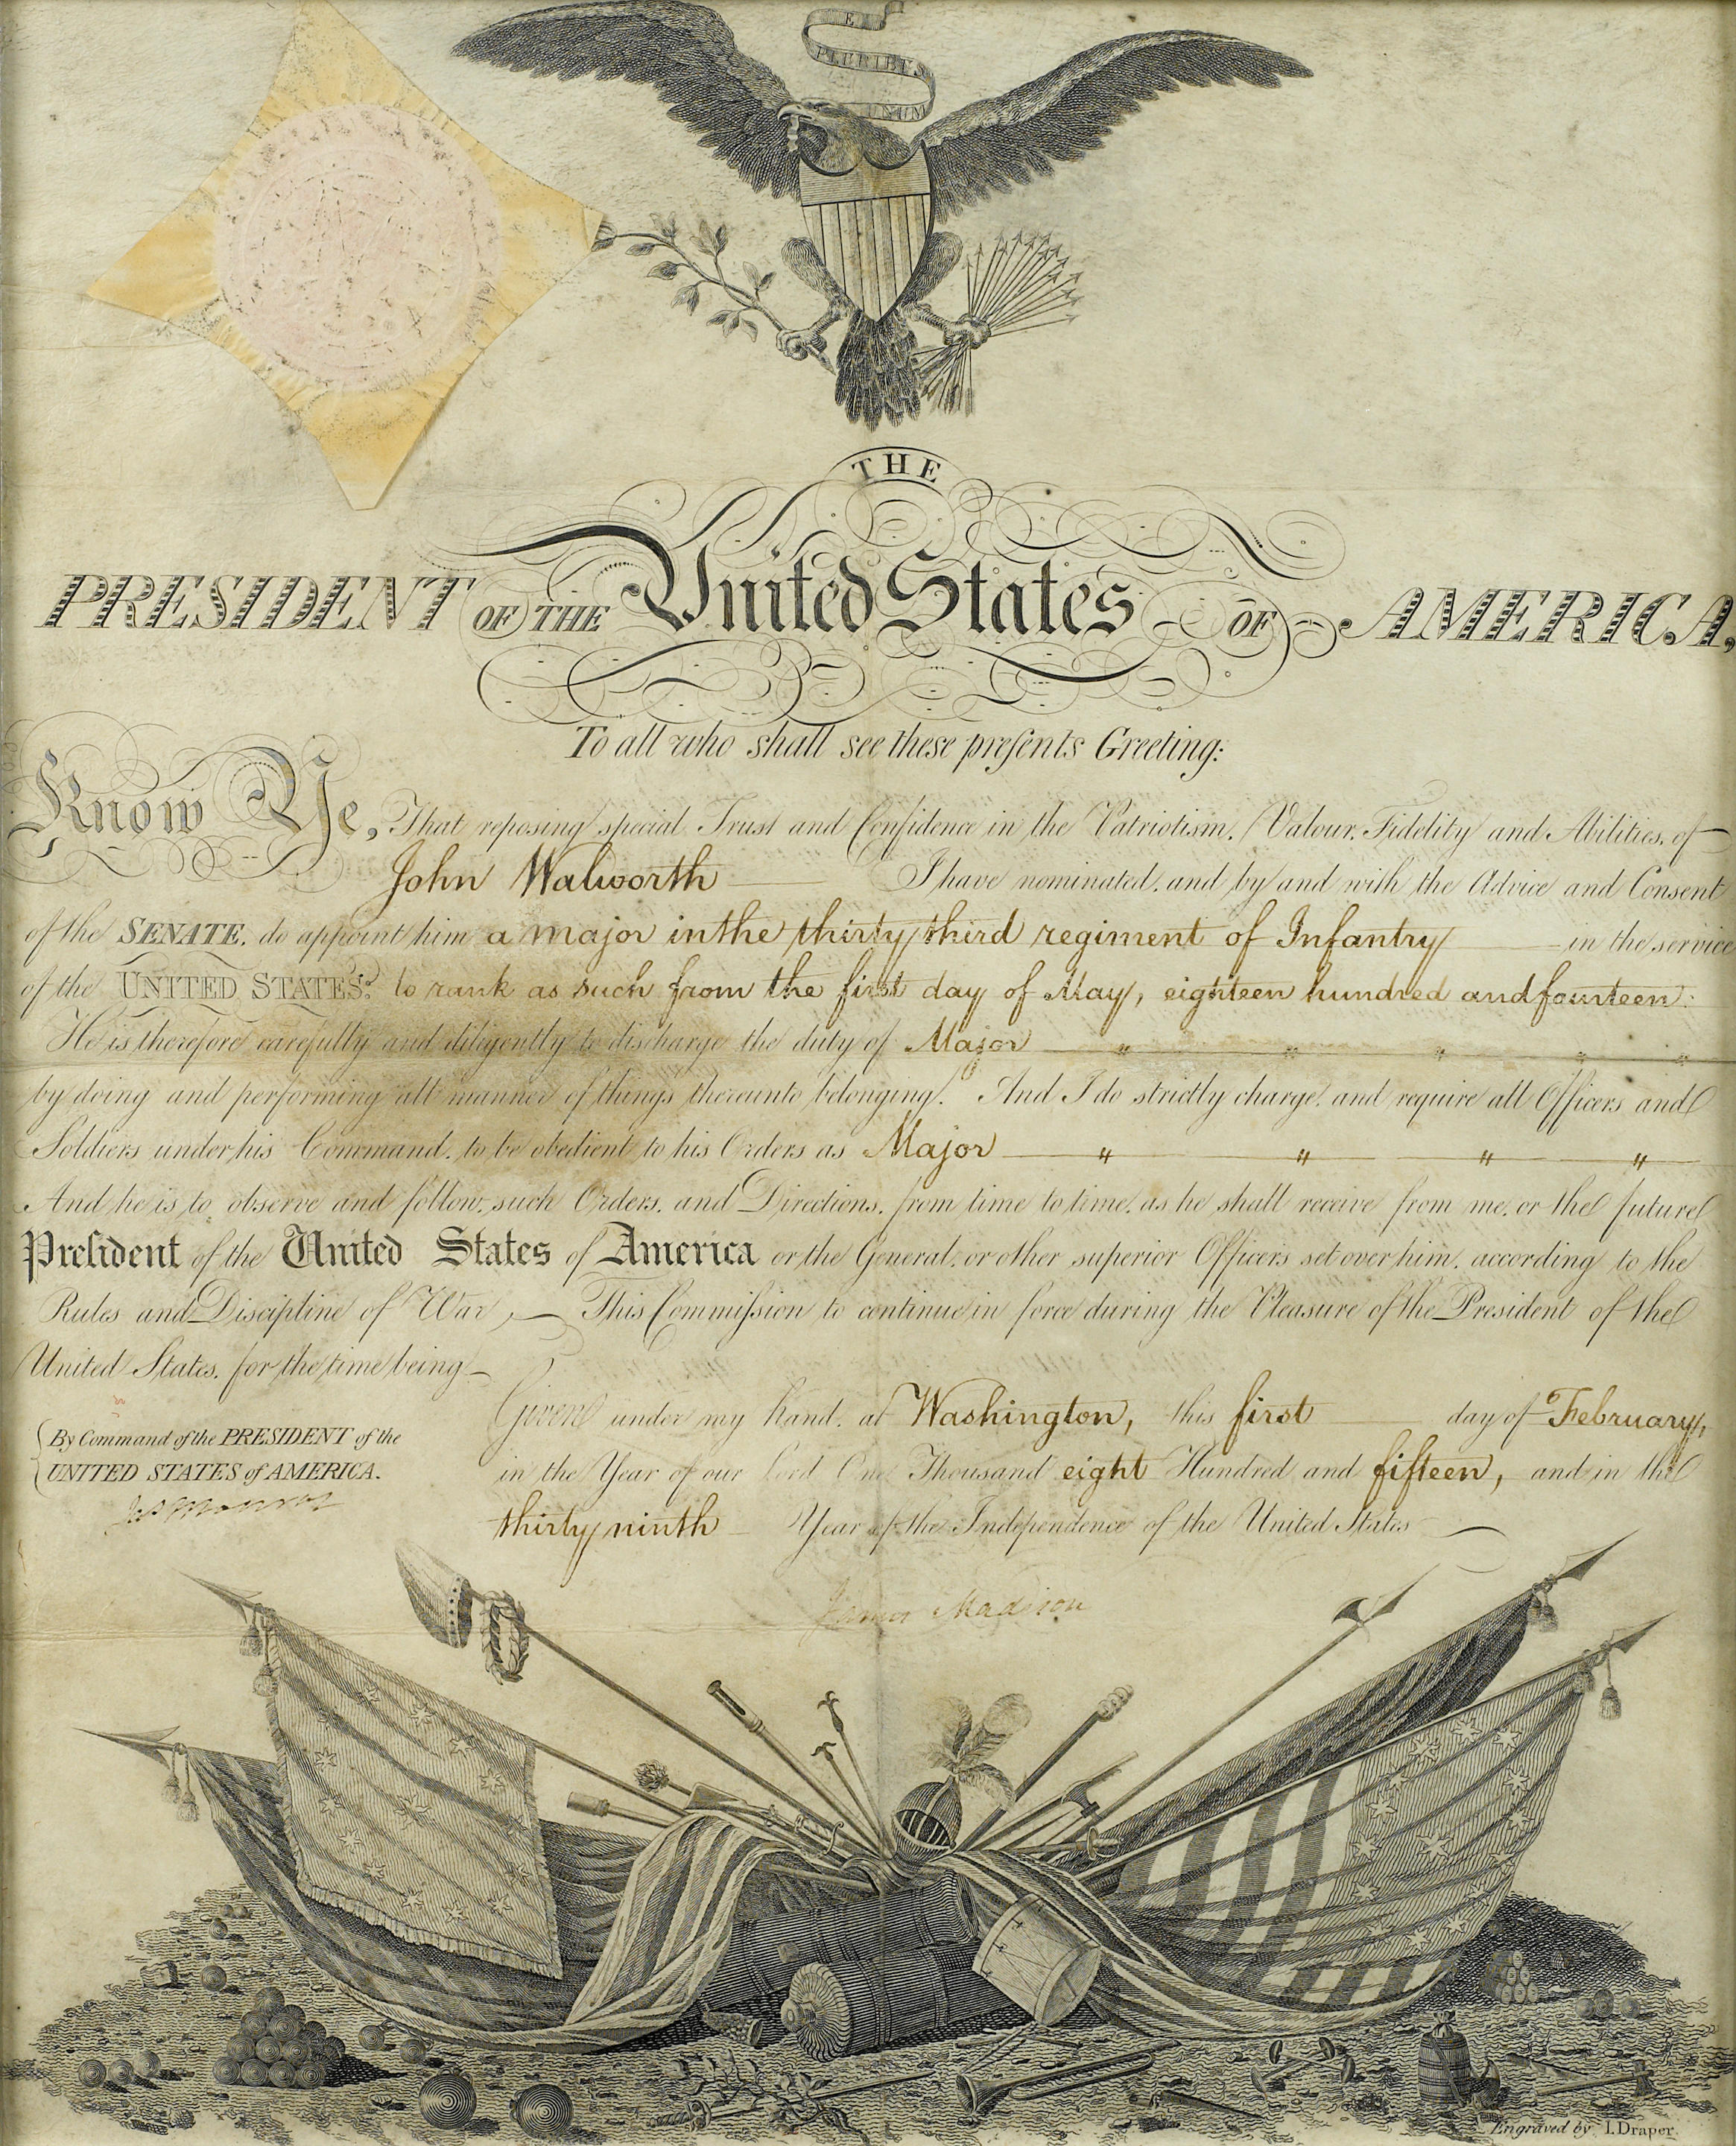 E
PLURIBUS
UNUM
THE
PRESIDENT OF THE United States OF AMERICA,
To all who shall see these presents Greeting:
Know Ye, That reposing special Trust and Confidence in the Patriotism, Valour, Fidelity and Abilities, of
John Walworth I have nominated, and by and with the Advice and Consent
of the SENATE, do appoint him a major in the thirty third regiment of Infantry in the service
of the UNITED STATES: to rank as such from the first day of May, eighteen hundred and fourteen:
He is therefore carefully and diligently to discharge the duty of Major " " " " "
by doing and performing all manner of things thereunto belonging. And I do strictly charge, and require all Officers and
Soldiers under his Command, to be obedient to his Orders as Major " " " "
And he is to observe and follow such Orders, and Directions, from time to time, as he shall receive from me, or the future
President of the United States of America or the General, or other superior Officers set over him, according to the
Rules and Discipline of War, This Commission to continue in force during the Pleasure of the President of the
United States, for the time being
Given under my hand, at Washington, this first day of February,
in the Year of our Lord One Thousand eight Hundred and fifteen, and in the
thirty ninth Year of the Independence of the United States
By Command of the PRESIDENT of the
UNITED STATES of AMERICA.
Jas Monroe
James Madison
Engraved by I. Draper